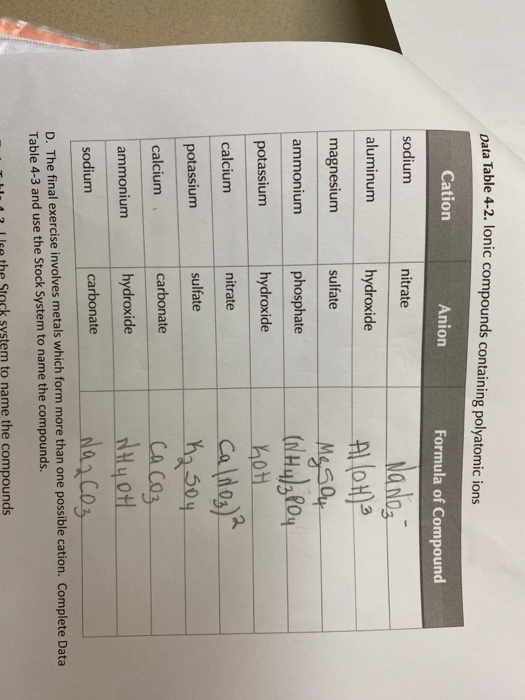 Data Table 4-2. Ionic compounds containing polyatomic ions
Cation Anion Formula of Compound
sodium nitrate NaNO3-
aluminum hydroxide Al(OH)³
magnesium sulfate MgSO4
ammonium phosphate (NH4)3PO4
potassium hydroxide KOH
calcium nitrate Ca(NO3)²
potassium sulfate K2SO4
calcium carbonate CaCO3
ammonium hydroxide NH4OH
sodium carbonate Na2CO3
D. The final exercise involves metals which form more than one possible cation. Complete Data
Table 4-3 and use the Stock System to name the compounds.
Use the Stock system to name the compounds